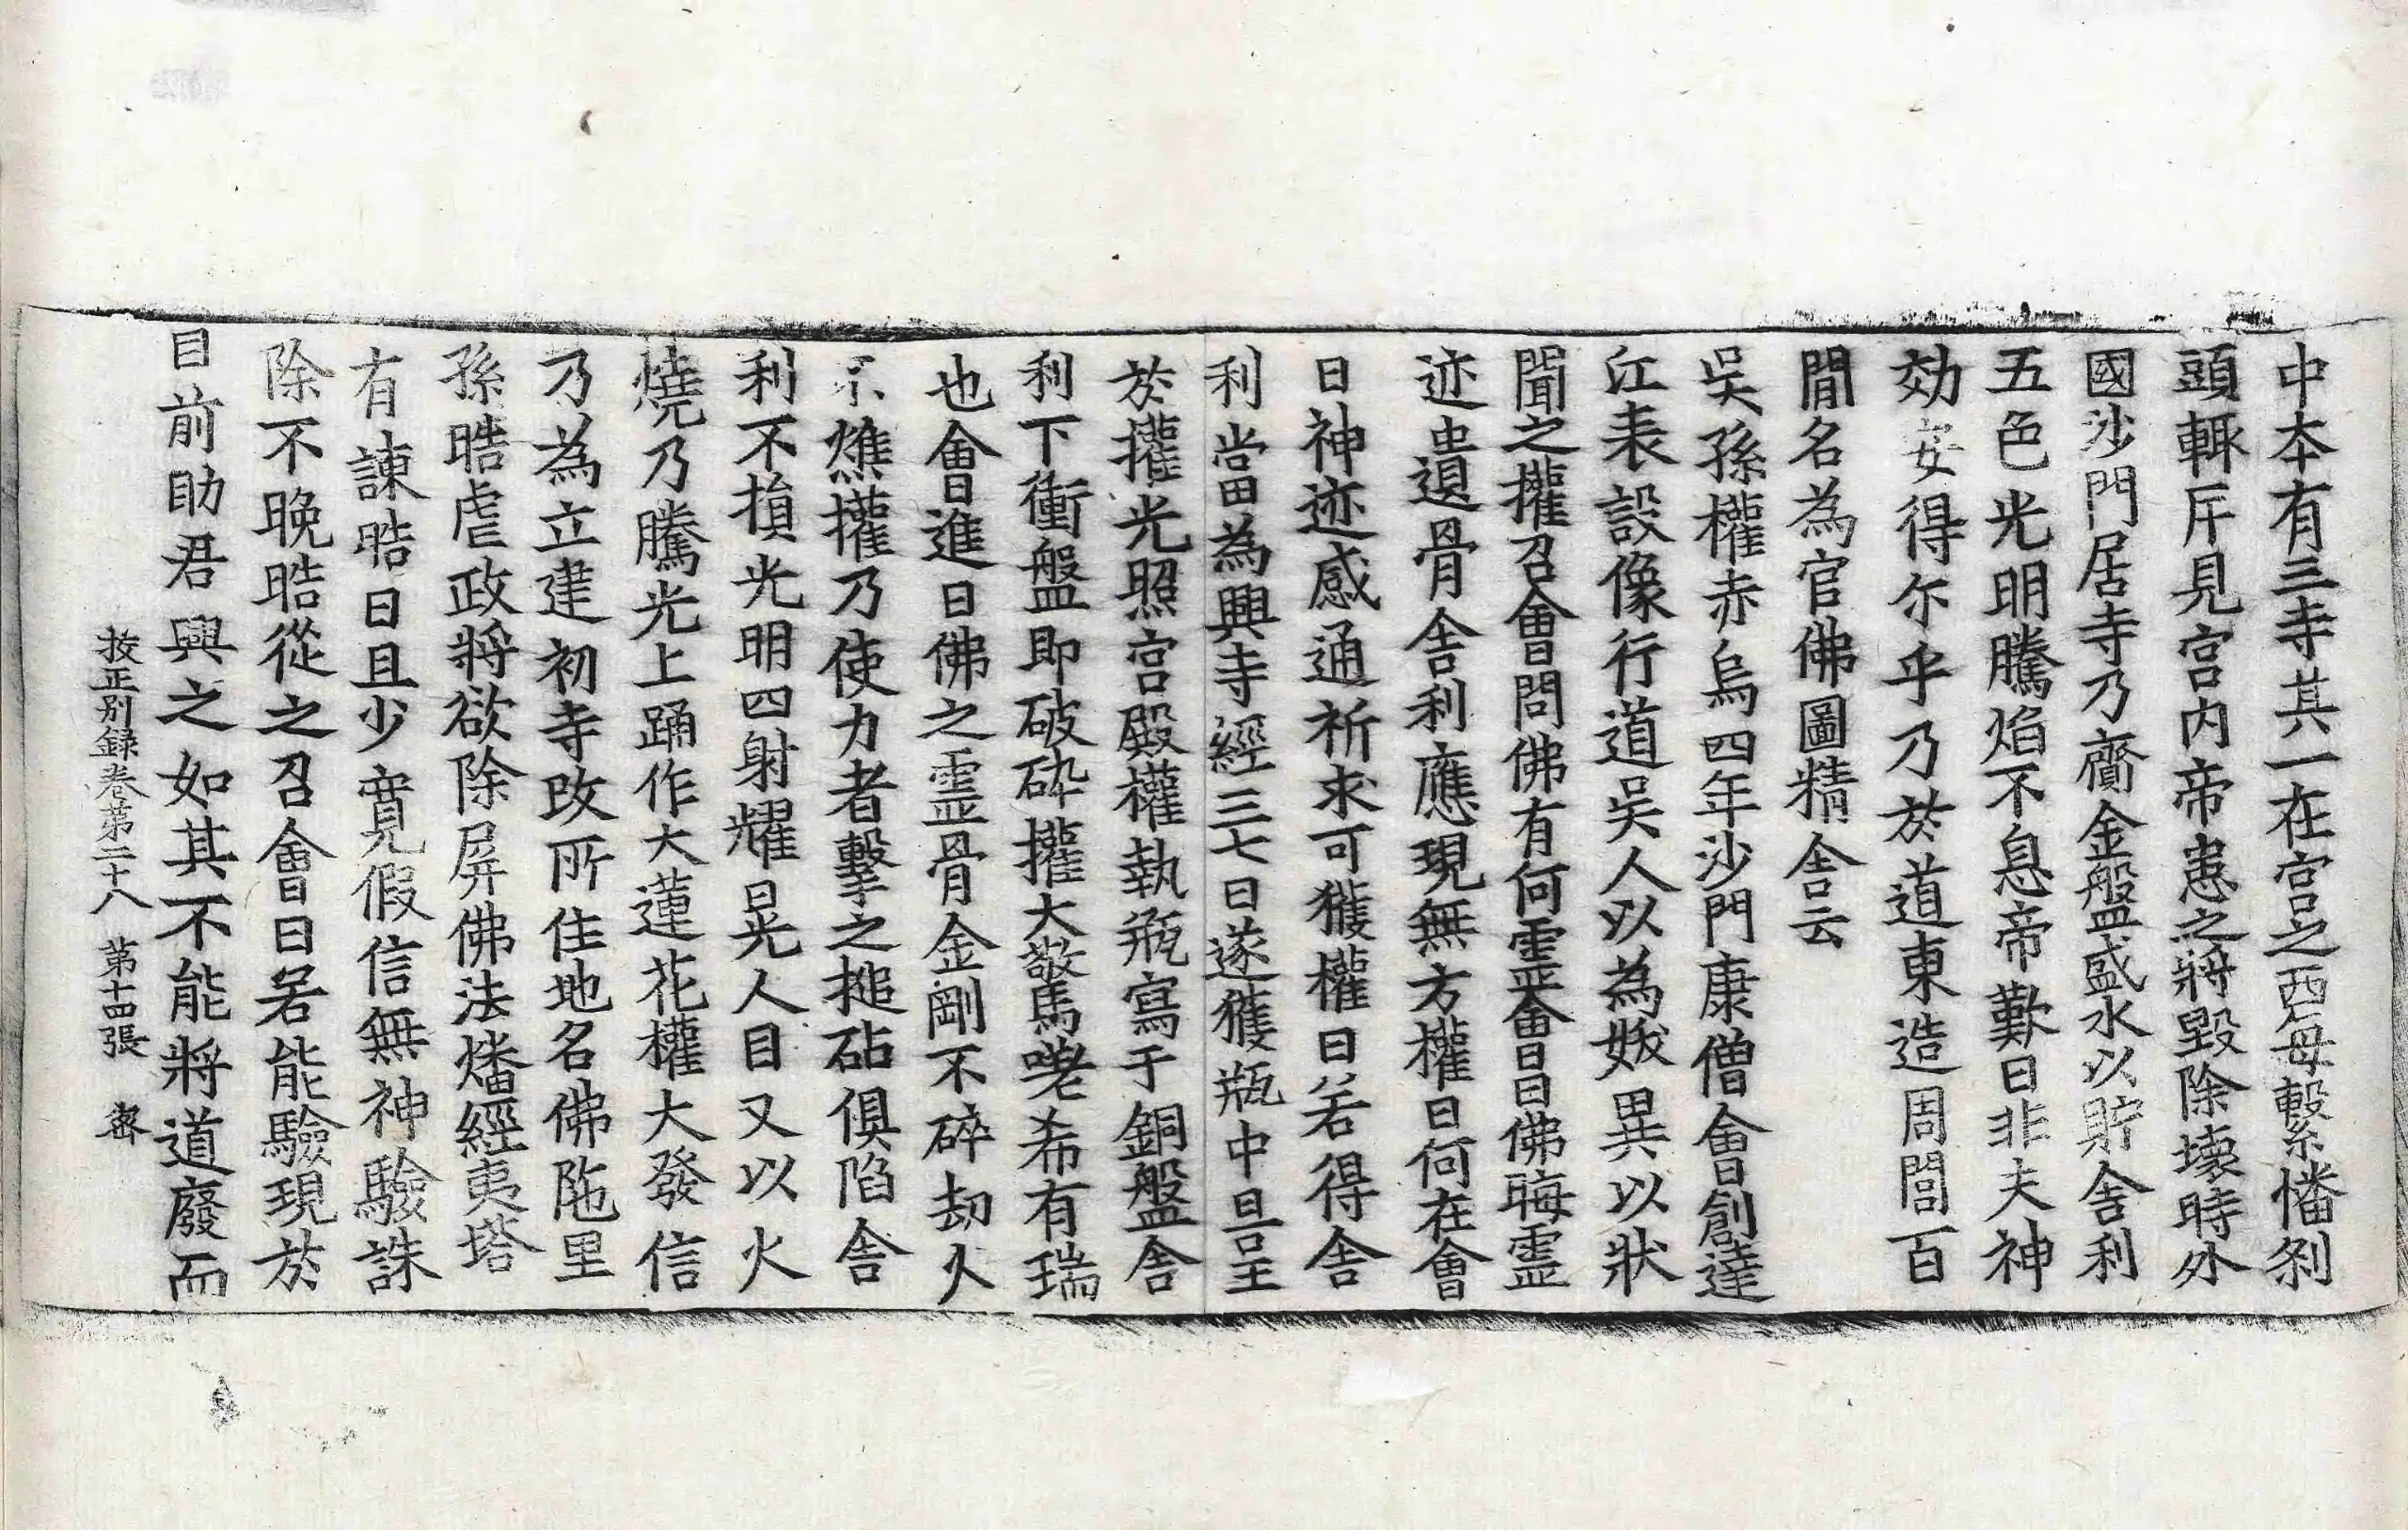 中本有三寺其一在宮之西每繫幡刹
頭輒斥見宮内帝患之將毀除壞時外
國沙門居寺乃齎金盤盛水以貯舎利
五色光明騰焰不息帝歎曰非夫神
効安得尓乎乃於道東造周閭百
閒名為官佛圖精舎云
吳孫權赤烏四年沙門康僧會創達
江表設像行道吳人以為妖異以狀
聞之權召會問佛有何靈會曰佛晦靈
迹遺骨舎利應現無方權曰何在會
曰神迹感通祈求可獲權曰若得舎
利當為興寺經三七日遂獲瓶中旦呈
於權光照宮殿權執瓶寫于銅盤舎
利下衝盤即破碎權大驚嗟希有瑞
也會進曰佛之靈骨金剛不碎劫火
不燋權乃使力者擊之搥砧俱陷舎
利不損光明四射耀晃人目又以火
燒乃騰光上踊作大蓮花權大發信
乃為立建初寺改所住地名佛陁里
孫晧虐政將欲除屏佛法燔經夷塔
有諫晧曰且少寬假信無神驗誅
除不晚晧從之召會曰若能驗現於
目前助君興之如其不能將道廢而
挍正別録卷第二十八　第十四張　密